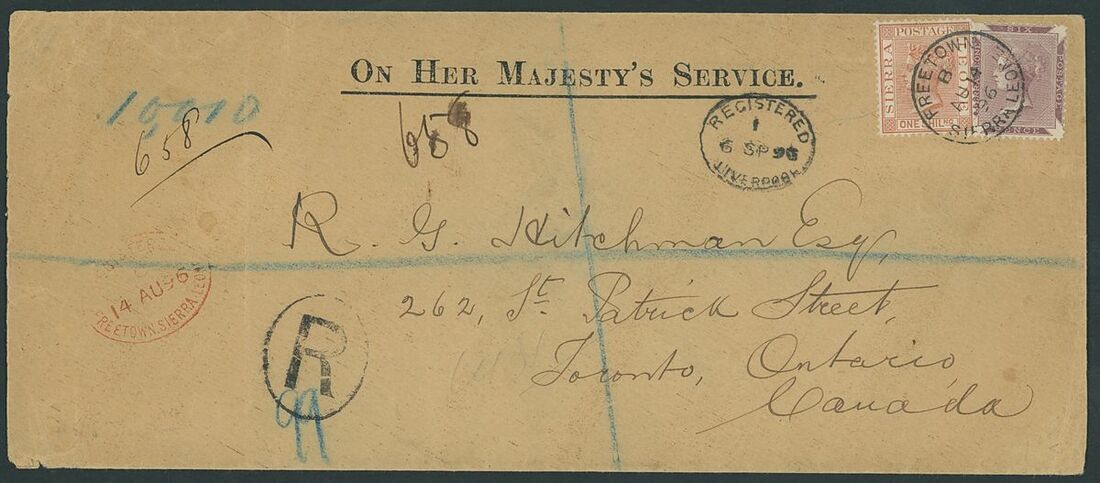 ON HER MAJESTY'S SERVICE.
SIERRA
POSTAGE
LEONE
ONE SHILNG
SIX
POSTAGE
FREETOWN
B
AU 14
96
SIERRA LEONE
10010
658
658
REGISTERED
1
6 SP 96
LIVERPOOL
R. G. Hitchman Esq,
262, St. Patrick Street,
Toronto, Ontario,
Canada
14 AU 96
FREETOWN. SIERRA LEONE
R
99